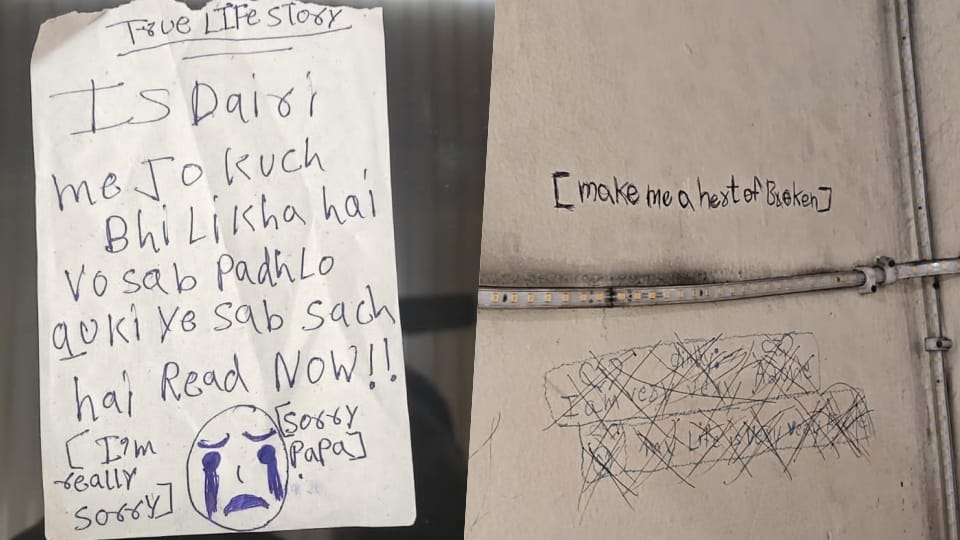 True LIFe story
Is Dairi
me Jo kuch
Bhi Likha hai
Vo sab PadhLo
quki ye sab sach
hai Read NOW!!
[I'm
really
sorry]
[sorry
PaPa]
[make me a hert of Broken]
I am
my Life is Very Very